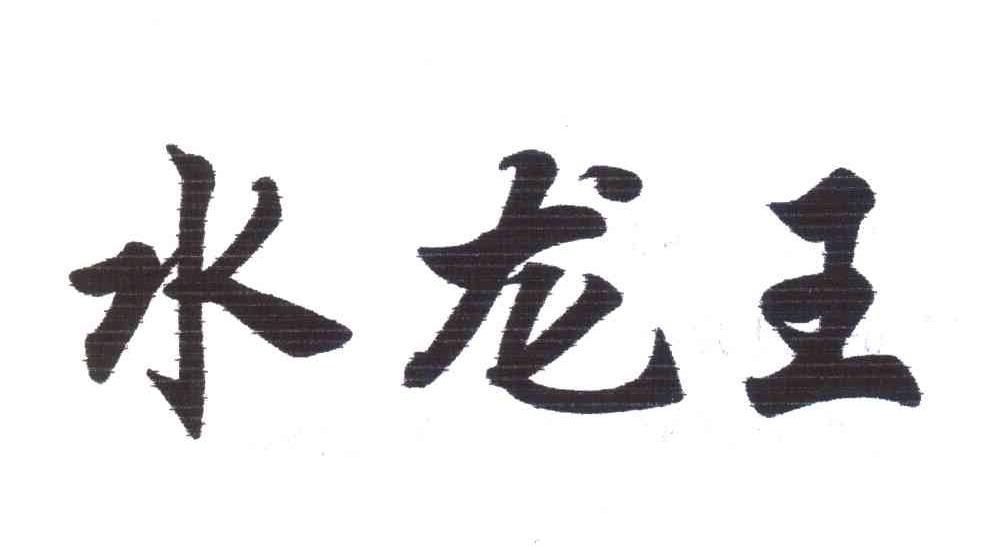 水龙王